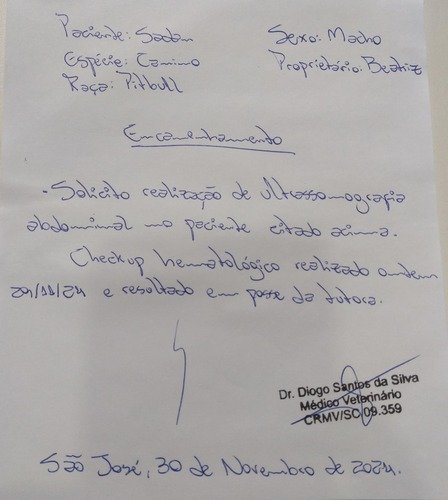 Paciente: Sadam Sexo: Macho
Espécie: Canino Proprietário: Beatriz
Raça: Pitbull
Encaminhamento
- Solicito realização de ultrassonografia
abdominal no paciente citado acima.
Checkup hematológico realizado ontem
29/11/24 e resultado em posse da tutora.
Dr. Diogo Santos da Silva
Médico Veterinário
CRMV/SC 09.359
São José, 30 de Novembro de 2024.